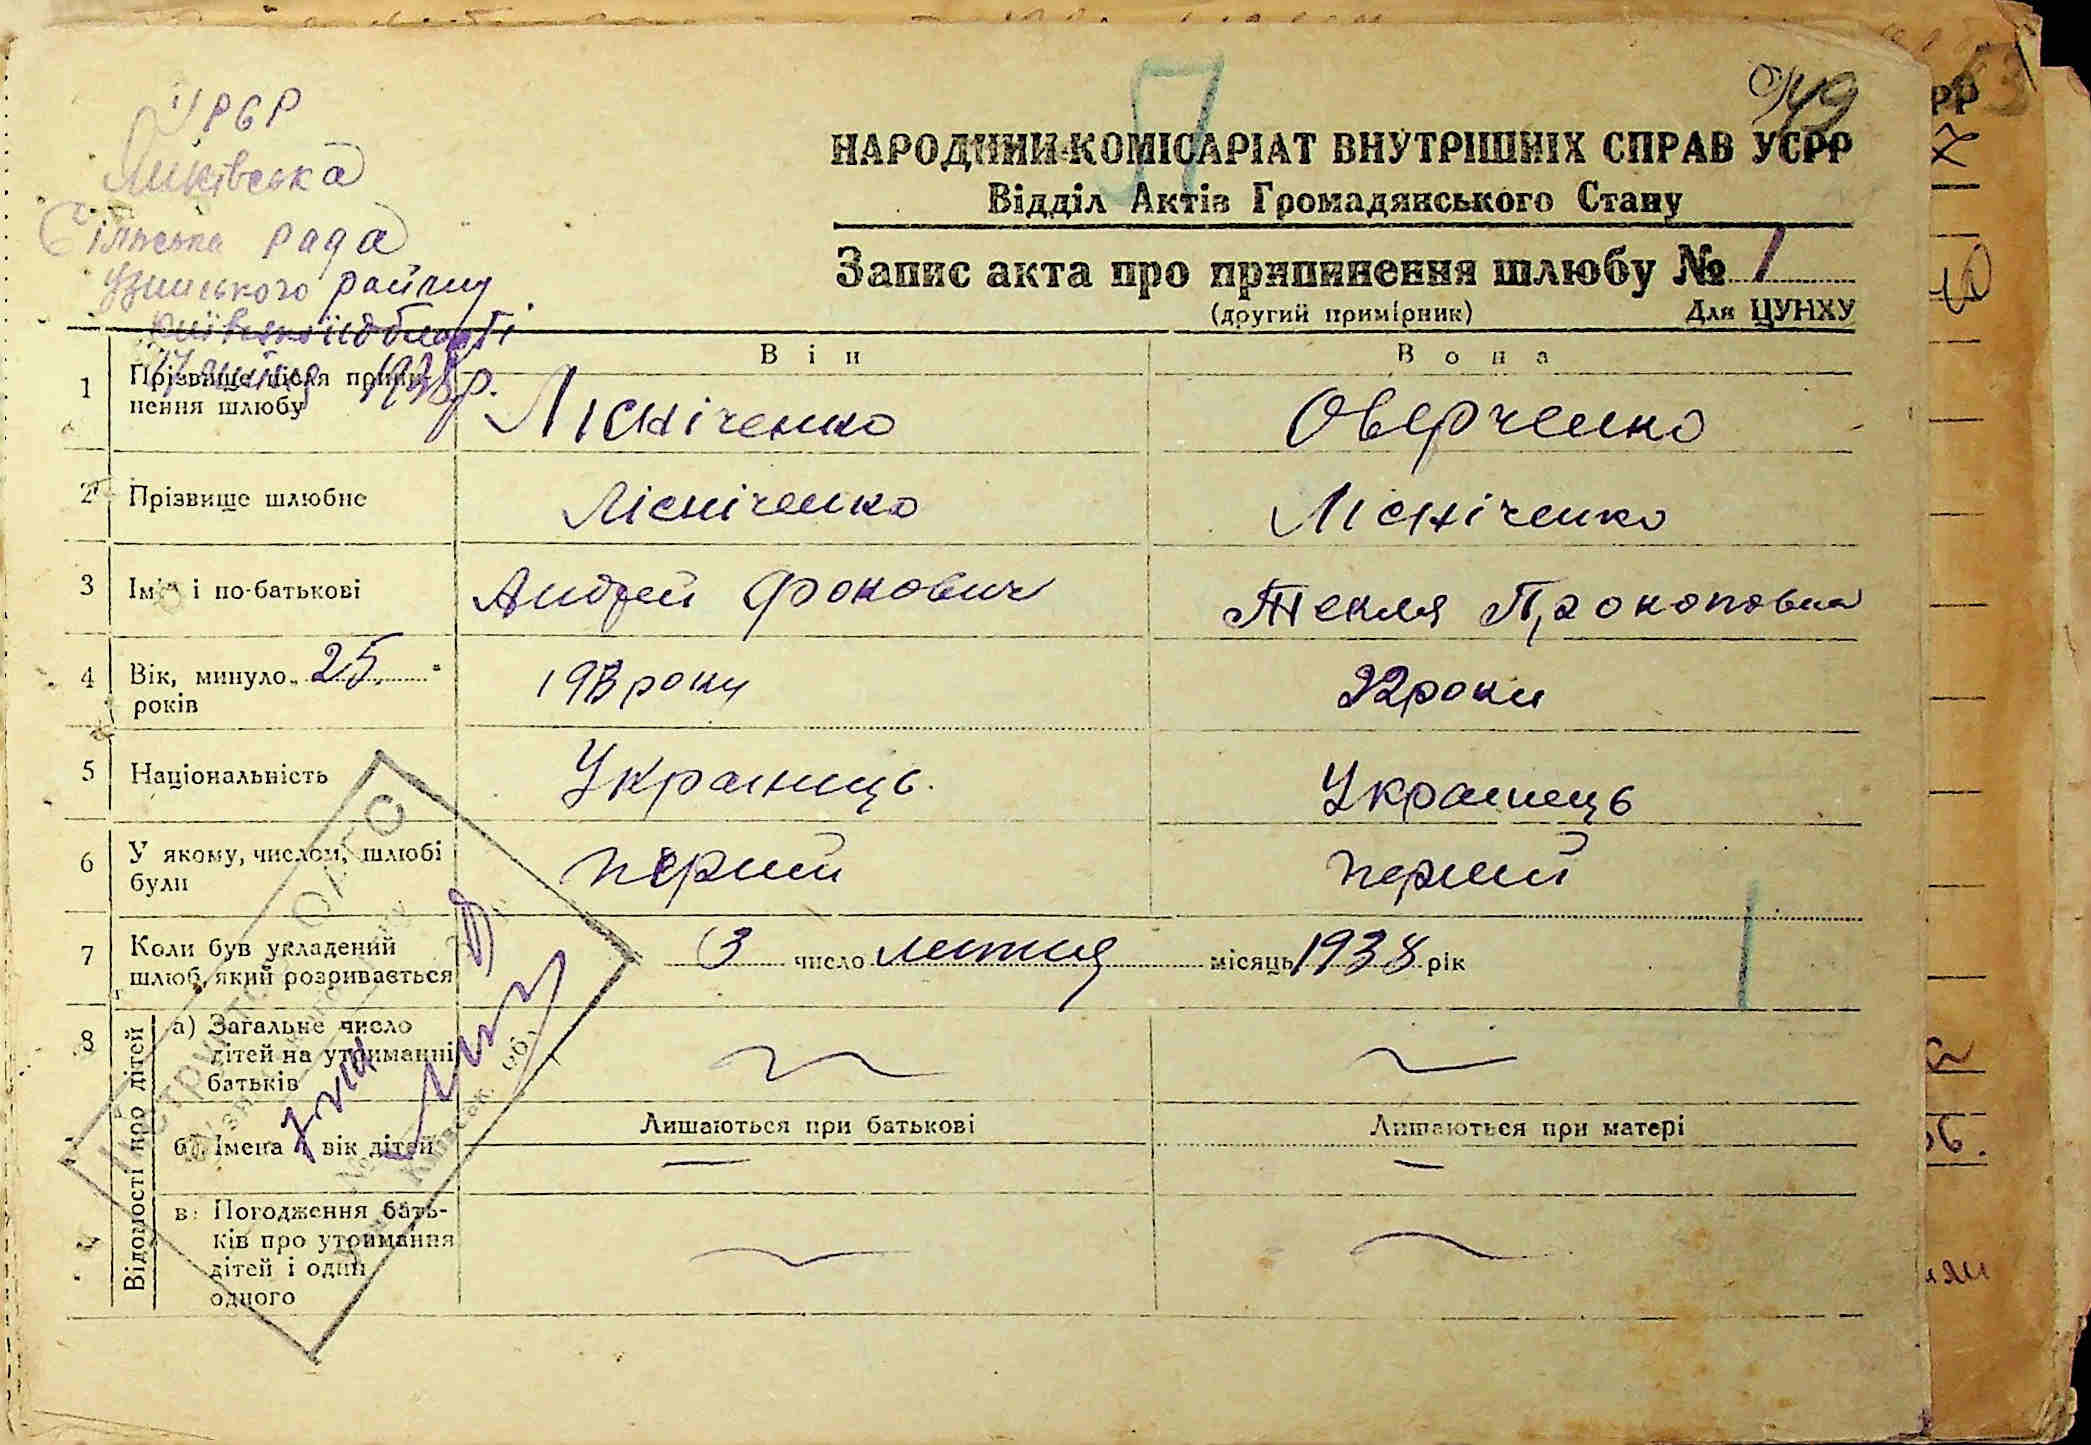 УРСР
Ликівська
Сільська рада
Узинського району
Київської області
1938 р.
49
НАРОДНИЙ КОМІСАРІАТ ВНУТРІШНІХ СПРАВ УСРР
Відділ Актів Громадянського Стану
Запис акта про припинення шлюбу № 1
(другий примірник) Для ЦУНХУ
Він Вона
1 Прізвище після припинення шлюбу Лісніченко Оверченко
2 Прізвище шлюбне Лісніченко Лісніченко
3 Ім'я і по-батькові Андрей Фокович Текля Прокоповна
4 Вік, минуло 25 років роки 22 роки
5 Національність Украинець Украинець
6 У якому, числом, шлюбі були перший перший
7 Коли був укладений шлюб, який розривається 3 число лютня місяць 1938 рік
Відомості про дітей
8 а) Загальне число дітей на утриманні батьків
Лишаються при батькові Лишаються при матері
б) Імена і вік дітей — —
в) Погодження батьків про утримання дітей і один одного